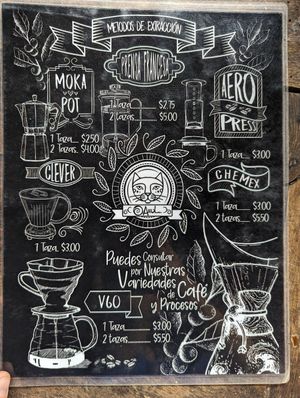 METODOS DE EXTRACCIÓN
PRENSA FRANCESA
1 Taza........ $2.75
2 Tazas...... $5.00
MOKA
POT
1 Taza...... $2.50
2 Tazas.. $4.00
AERO
PRESS
1 Taza...... $3.00
CLEVER
1 Taza, $3.00
CHEMEX
1 taza........ $3.00
2 tazas...... $5.50
Puedes Consultar
por Nuestras
Variedades
de Café
y Procesos
V60
1 Taza.......... $3.00
2 tazas......... $5.50